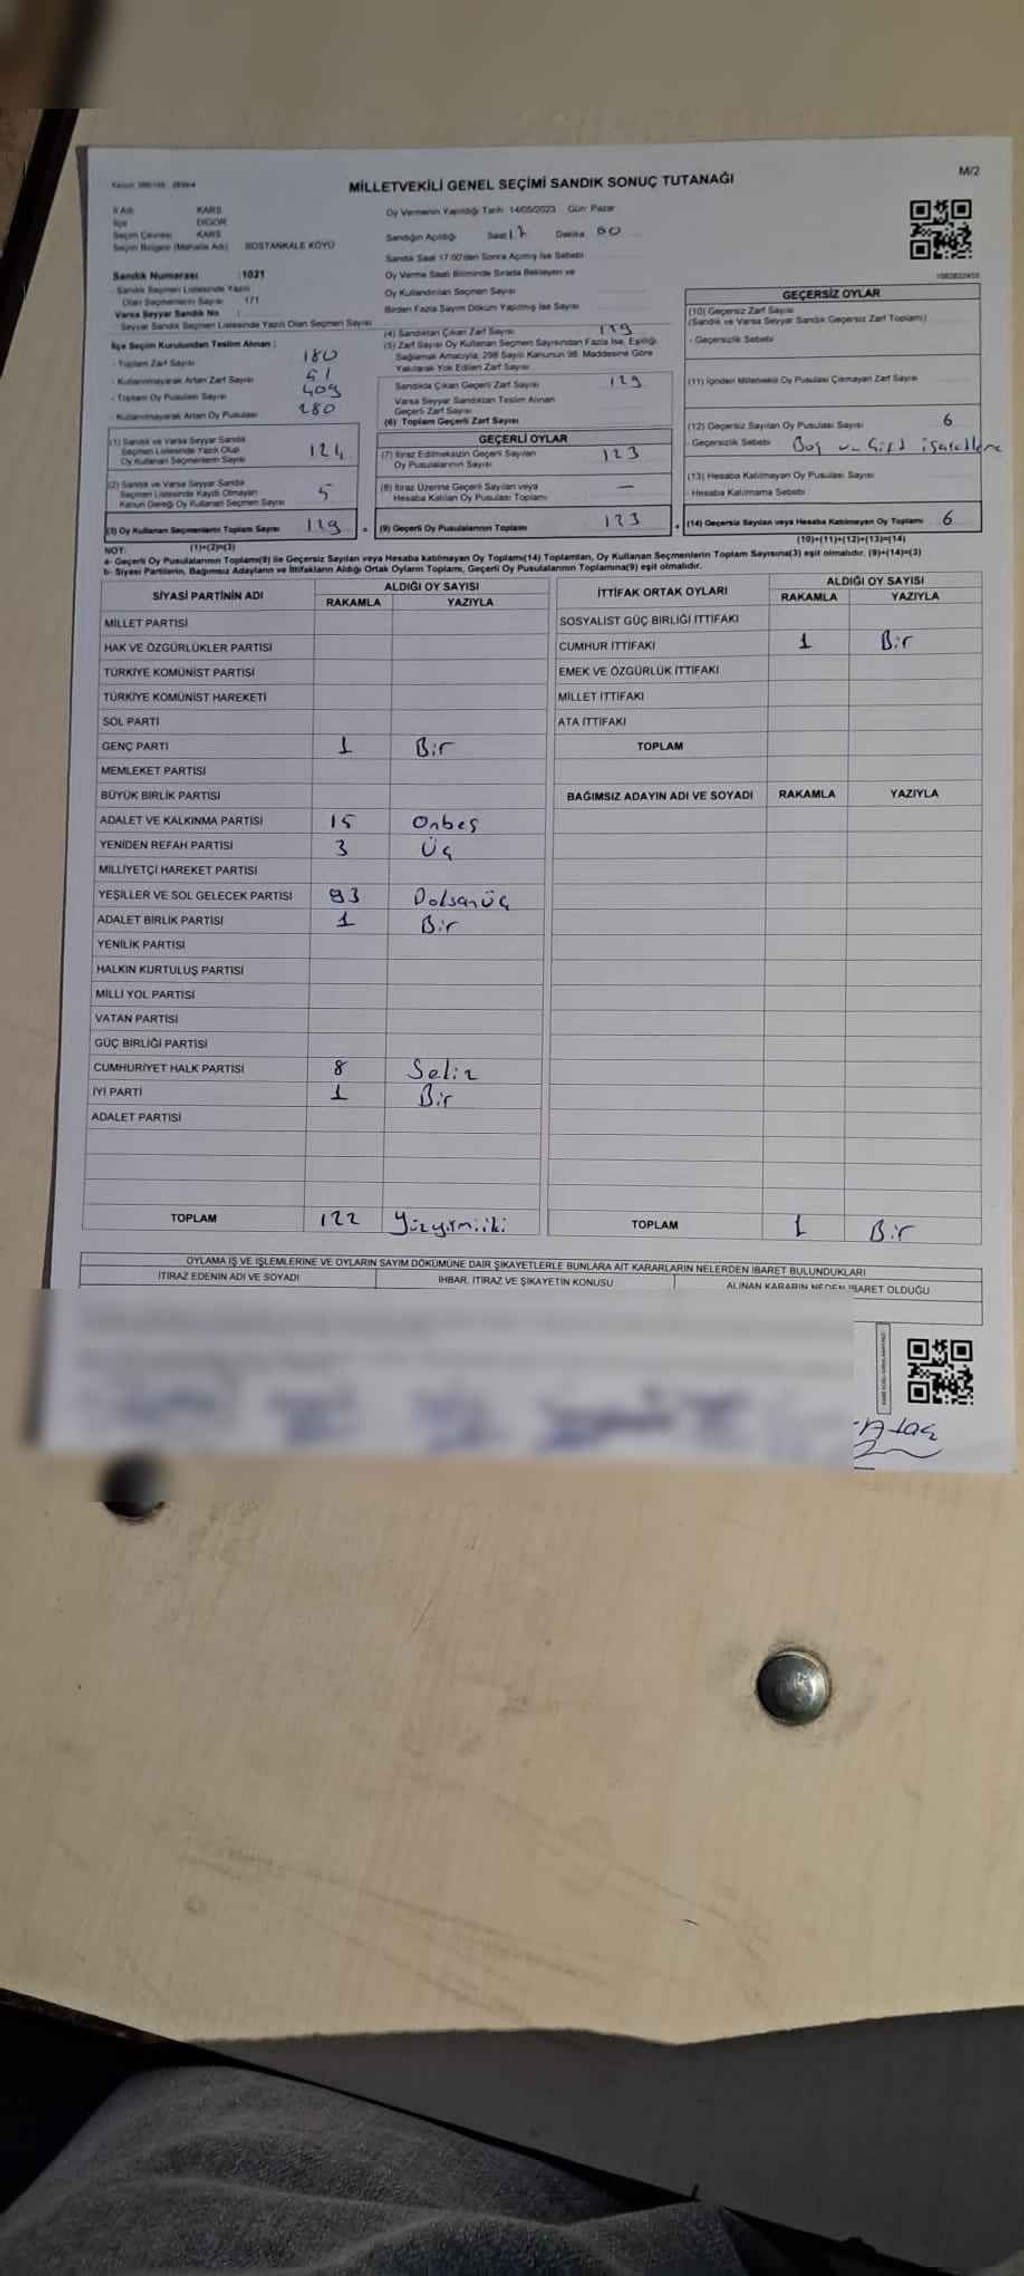 M/2
MİLLETVEKİLİ GENEL SEÇİMİ SANDIK SONUÇ TUTANAĞI
İl Adı KARS
İlçe DİGOR
Seçim Çevresi KARS
Seçim Bölgesi (Mahalle Adı) BOSTANKALE KÖYÜ
Sandık Numarası : 1021
Sandık Seçmen Listesinde Yazılı
Olan Seçmenlerin Sayısı 171
Varsa Seyyar Sandık No :
Seyyar Sandık Seçmen Listesinde Yazılı Olan Seçmen Sayısı
İlçe Seçim Kurulundan Teslim Alınan :
- Toplam Zarf Sayısı 180
- Kullanılmayarak Artan Zarf Sayısı 51
- Toplam Oy Pusulası Sayısı 409
- Kullanılmayarak Artan Oy Pusulası 280
(1) Sandık ve Varsa Seyyar Sandık
Seçmen Listesinde Yazılı Olup
Oy Kullanan Seçmenlerin Sayısı 124
(2) Sandık ve Varsa Seyyar Sandık
Seçmen Listesinde Kayıtlı Olmayan
Kanun Gereği Oy Kullanan Seçmen Sayısı 5
(3) Oy Kullanan Seçmenlerin Toplam Sayısı 129
(1)+(2)=(3)
Oy Vermenin Yapıldığı Tarih 14/05/2023 Gün: Pazar
Sandığın Açıldığı Saat 17 Dakika 00
Sandık Saat 17:00'den Sonra Açılmış İse Sebebi
Oy Verme Saati Bitiminde Sırada Bekleyen ve
Oy Kullandırılan Seçmen Sayısı
Birden Fazla Sayım Döküm Yapılmış İse Sayısı
(4) Sandıktan Çıkan Zarf Sayısı 129
(5) Zarf Sayısı Oy Kullanan Seçmen Sayısından Fazla İse, Eşitliği
Sağlamak Amacıyla, 298 Sayılı Kanunun 98. Maddesine Göre
Yakılarak Yok Edilen Zarf Sayısı
Sandıkta Çıkan Geçerli Zarf Sayısı 129
Varsa Seyyar Sandıktan Teslim Alınan
Geçerli Zarf Sayısı
(6) Toplam Geçerli Zarf Sayısı
GEÇERLİ OYLAR
(7) İtiraz Edilmeksizin Geçerli Sayılan
Oy Pusulalarının Sayısı 123
(8) İtiraz Üzerine Geçerli Sayılan veya
Hesaba Katılan Oy Pusulası Toplamı —
(9) Geçerli Oy Pusulalarının Toplamı 123
GEÇERSİZ OYLAR
(10) Geçersiz Zarf Sayısı
(Sandık ve Varsa Seyyar Sandık Geçersiz Zarf Toplamı)
- Geçersizlik Sebebi
(11) İçinden Milletvekili Oy Pusulası Çıkmayan Zarf Sayısı
(12) Geçersiz Sayılan Oy Pusulası Sayısı 6
- Geçersizlik Sebebi Boş ve Çift işaretleme
(13) Hesaba Katılmayan Oy Pusulası Sayısı
- Hesaba Katılmama Sebebi
(14) Geçersiz Sayılan veya Hesaba Katılmayan Oy Toplamı 6
(10)+(11)+(12)+(13)=(14)
NOT:
a- Geçerli Oy Pusulalarının Toplamı(9) ile Geçersiz Sayılan veya Hesaba katılmayan Oy Toplamı(14) Toplamları, Oy Kullanan Seçmenlerin Toplam Sayısına(3) eşit olmalıdır. (9)+(14)=(3)
b- Siyasi Partilerin, Bağımsız Adayların ve İttifakların Aldığı Ortak Oyların Toplamı, Geçerli Oy Pusulalarının Toplamına(9) eşit olmalıdır.
SİYASİ PARTİNİN ADI ALDIĞI OY SAYISI
RAKAMLA YAZIYLA
MİLLET PARTİSİ
HAK VE ÖZGÜRLÜKLER PARTİSİ
TÜRKİYE KOMÜNİST PARTİSİ
TÜRKİYE KOMÜNİST HAREKETİ
SOL PARTİ
GENÇ PARTİ 1 Bir
MEMLEKET PARTİSİ
BÜYÜK BİRLİK PARTİSİ
ADALET VE KALKINMA PARTİSİ 15 Onbeş
YENİDEN REFAH PARTİSİ 3 Üç
MİLLİYETÇİ HAREKET PARTİSİ
YEŞİLLER VE SOL GELECEK PARTİSİ 93 Doksanüç
ADALET BİRLİK PARTİSİ 1 Bir
YENİLİK PARTİSİ
HALKIN KURTULUŞ PARTİSİ
MİLLİ YOL PARTİSİ
VATAN PARTİSİ
GÜÇ BİRLİĞİ PARTİSİ
CUMHURİYET HALK PARTİSİ 8 Sekiz
İYİ PARTİ 1 Bir
ADALET PARTİSİ
TOPLAM 122 Yüzyirmiiki
İTTİFAK ORTAK OYLARI ALDIĞI OY SAYISI
RAKAMLA YAZIYLA
SOSYALİST GÜÇ BİRLİĞİ İTTİFAKI
CUMHUR İTTİFAKI 1 Bir
EMEK VE ÖZGÜRLÜK İTTİFAKI
MİLLET İTTİFAKI
ATA İTTİFAKI
TOPLAM
BAĞIMSIZ ADAYIN ADI VE SOYADI RAKAMLA YAZIYLA
TOPLAM 1 Bir
OYLAMA İŞ VE İŞLEMLERİNE VE OYLARIN SAYIM DÖKÜMÜNE DAİR ŞİKAYETLERLE BUNLARA AİT KARARLARIN NELERDEN İBARET BULUNDUKLARI
İTİRAZ EDENİN ADI VE SOYADI İHBAR, İTİRAZ VE ŞİKAYETİN KONUSU ALINAN KARARIN NEDEN İBARET OLDUĞU